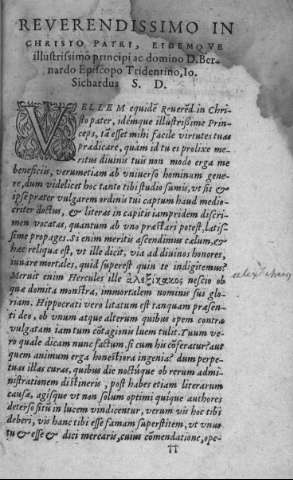 REVERENDISSIMO IN
CHRISTO PATRI, EIDEMQVE
illustrissimo principi ac domino D. Ber-
nardo Episcopo Tridentino, Io.
Sichardus S. D.
VELLEM equidẽ Reuerẽd. in Chri-
sto pater, idẽmque illustrissime Prin-
ceps, tã esset mihi facile virtutes tuas
prædicare, quam id tu ei prolixe me-
ritus diuinis tuis non modo erga me
beneficiis, verumetiam ab vniuerso hominum gene-
re, dum videlicet hoc tanto tibi studio sumis, vt sis &
ipse præter vulgarem ordinis tui captum haud medio-
criter doctus, & literas in capitis iampridem discri-
men vocatas, quantum ab vno præstari potest, latis-
sime propages. Si enim meritis ascendimus cælum, &
hæc reliqua est, vt ille dicit, via ad diuinos honores,
iuuare mortales, quid superest quin te indigitemus?
Meruit enim Hercules ille ἀλεξίκακος nescio ob
quæ domita monstra, immortalem nominis sui glo-
riam, Hippocrati vero litatum est tanquam præsen-
ti deo, ob vnum atque alterum quibus opem contra
vulgatam iam tum cõtagionis luem tulit. Tuum ve-
ro quale dicam nunc factum, si cum his cõferatur? aut
quem animum erga honestiora ingenia? dum perpe-
tuas illas curas, quibus die noctúque ob rerum admi-
nistrationem distineris, post habes etiam literarum
causa, agisque vt non solum optimi quique authores
deterso situ in lucem vindicentur, verum vis hoc tibi
deberi, vis hanc tibi esse famam superstitem, vt vnus
tu & esse & dici mercaris, cuius cõmendatione, ope-